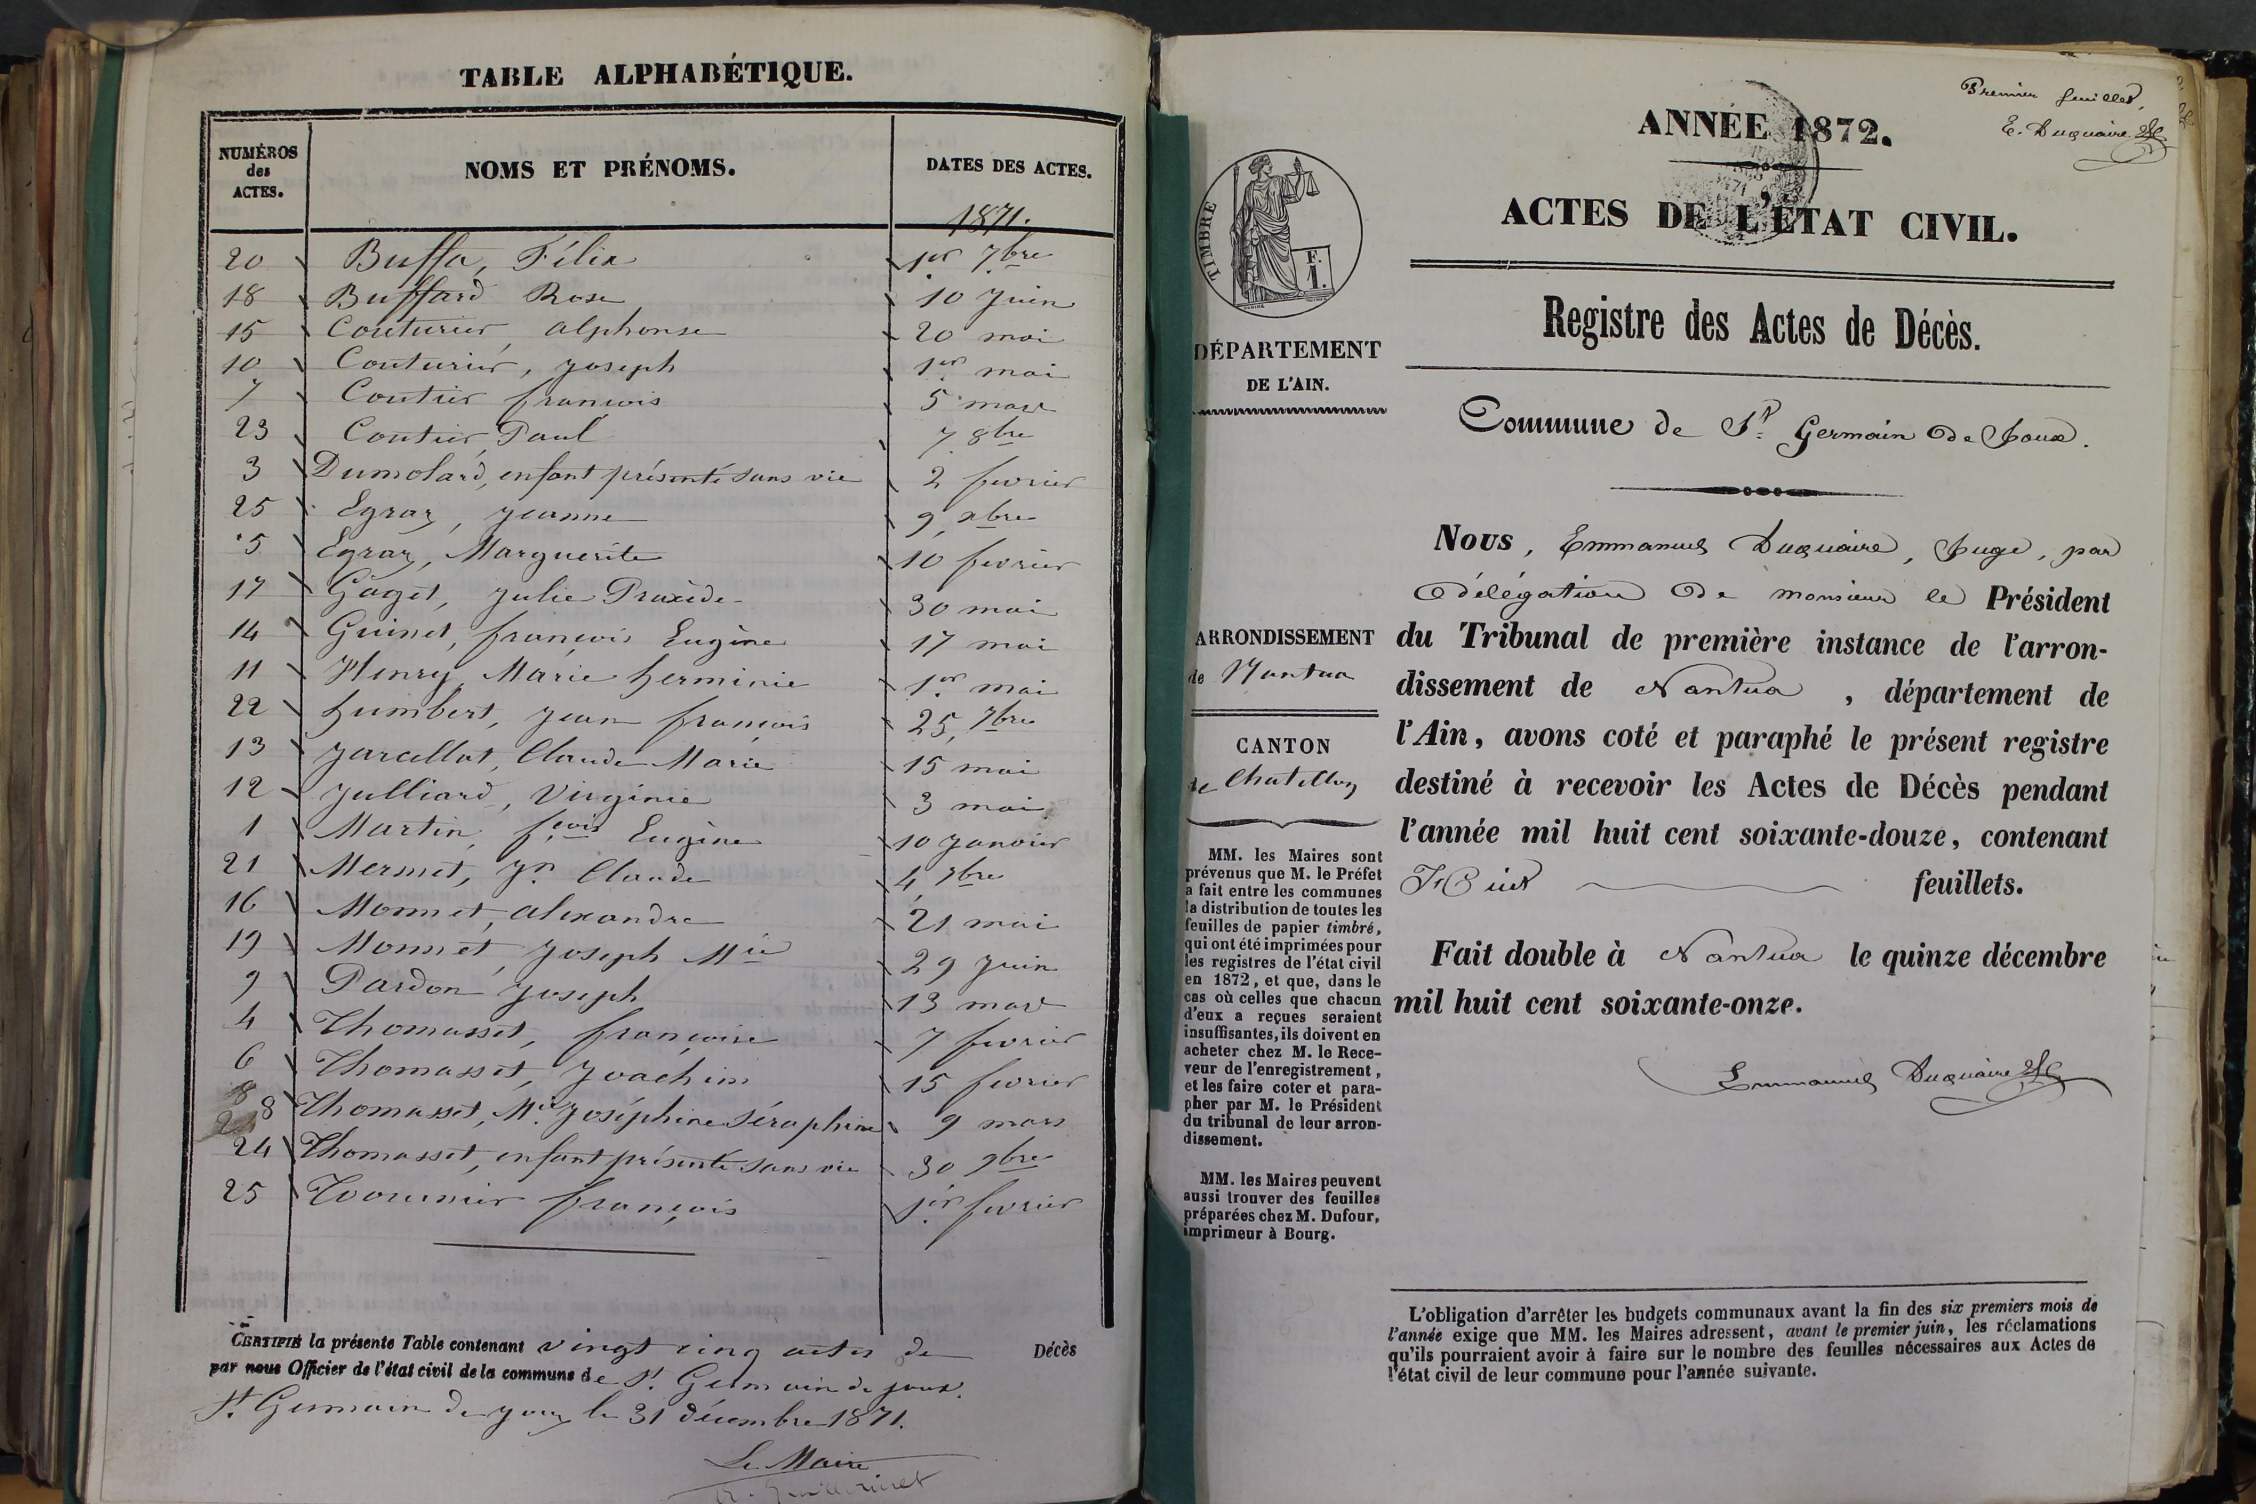 TABLE ALPHABÉTIQUE.
NUMÉROS des ACTES. NOMS ET PRÉNOMS. DATES DES ACTES.
1871.
20 Buffa, Félix 1er 7bre
18 Buffard Rose 10 Juin
15 Couturier, alphonse 20 mai
10 Couturier, Joseph 1er mai
7 Coutier françois 5 mars
23 Coutier, Paul 7 8bre
3 Dumolard, enfant présenté sans vie 2 fevrier
25 Egraz, Jeanne 9 xbre
5 Egraz, Marguerite 10 fevrier
17 Gaget, Julie Praxède 30 mai
14 Guinet, françois Eugène 17 mai
11 Henry Marie herminie 1er mai
22 humbert, Jean françois 25, 7bre
13 Jarcellat, Claude Marie 15 mai
12 Julliard, Virginie 3 mai
1 Martin, fçois Eugène 10 Janvier
21 Mermet, Jn Claude 4 7bre
16 Monnet, alexandre 21 mai
19 Monnet, Joseph Mie 29 Juin
9 Pardon Joseph 13 mars
4 Thomasset, françoise 7 fevrier
6 Thomasset, Joachim 15 fevrier
8 Thomasset, Mie Joséphine Séraphine 9 mars
24 Thomasset, enfant présenté sans vie 30 9bre
25 françois 1er fevrier
CERTIFIÉ la présente Table contenant vingt cinq actes de Décès
par nous Officier de l'état civil de la commune de St Germain de joux.
St Germain de joux le 31 décembre 1871.
Le Maire
Premier feuillet.
E. Duquaire
ANNÉE 1872.
ACTES DE L'ÉTAT CIVIL.
TIMBRE
F.
1.
Registre des Actes de Décès.
DÉPARTEMENT
DE L'AIN.
Commune de St Germain de Joux.
Nous, Emmanuel Duquaire, Juge, par
délégation de monsieur le Président
du Tribunal de première instance de l'arron-
dissement de Nantua, département de
l'Ain, avons coté et paraphé le présent registre
destiné à recevoir les Actes de Décès pendant
l'année mil huit cent soixante-douze, contenant
Huit feuillets.
Fait double à Nantua le quinze décembre
mil huit cent soixante-onze.
Emmanuel Duquaire
ARRONDISSEMENT
de Nantua
CANTON
de Chatillon
MM. les Maires sont
prévenus que M. le Préfet
a fait entre les communes
la distribution de toutes les
feuilles de papier timbré,
qui ont été imprimées pour
les registres de l'état civil
en 1872, et que, dans le
cas où celles que chacun
d'eux a reçues seraient
insuffisantes, ils doivent en
acheter chez M. le Rece-
veur de l'enregistrement,
et les faire coter et para-
pher par M. le Président
du tribunal de leur arron-
dissement.
MM. les Maires peuvent
aussi trouver des feuilles
préparées chez M. Dufour,
imprimeur à Bourg.
L'obligation d'arrêter les budgets communaux avant la fin des six premiers mois de
l'année exige que MM. les Maires adressent, avant le premier juin, les réclamations
qu'ils pourraient avoir à faire sur le nombre des feuilles nécessaires aux Actes de
l'état civil de leur commune pour l'année suivante.